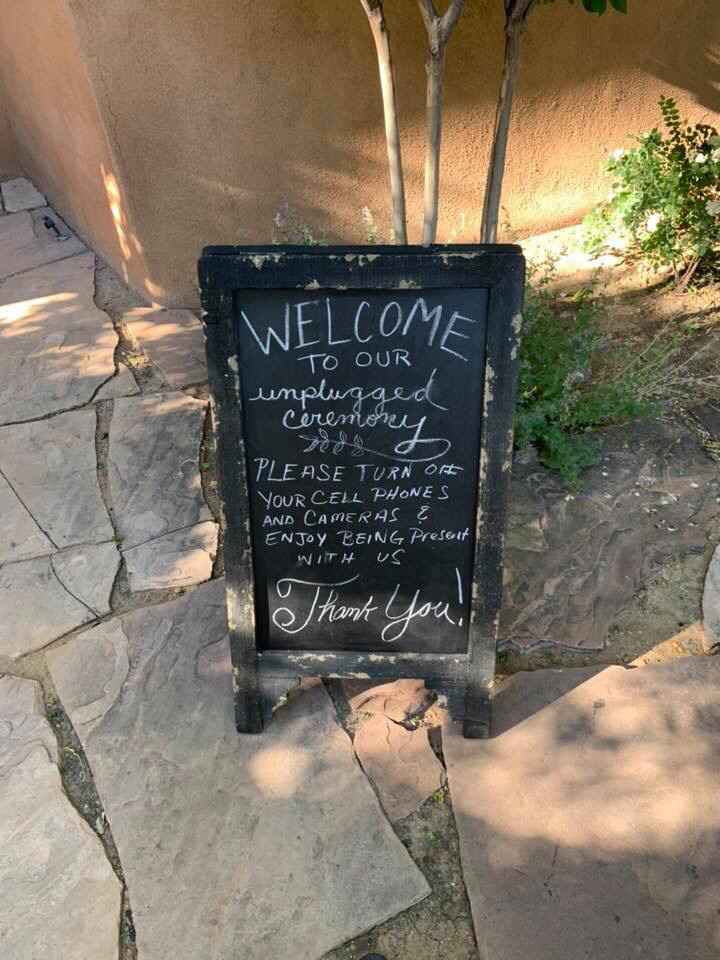 WELCOME
TO OUR
unplugged
ceremony
PLEASE TURN OFF
YOUR CELL PHONES
AND CAMERAS &
ENJOY BEING Present
WITH US
Thank You!